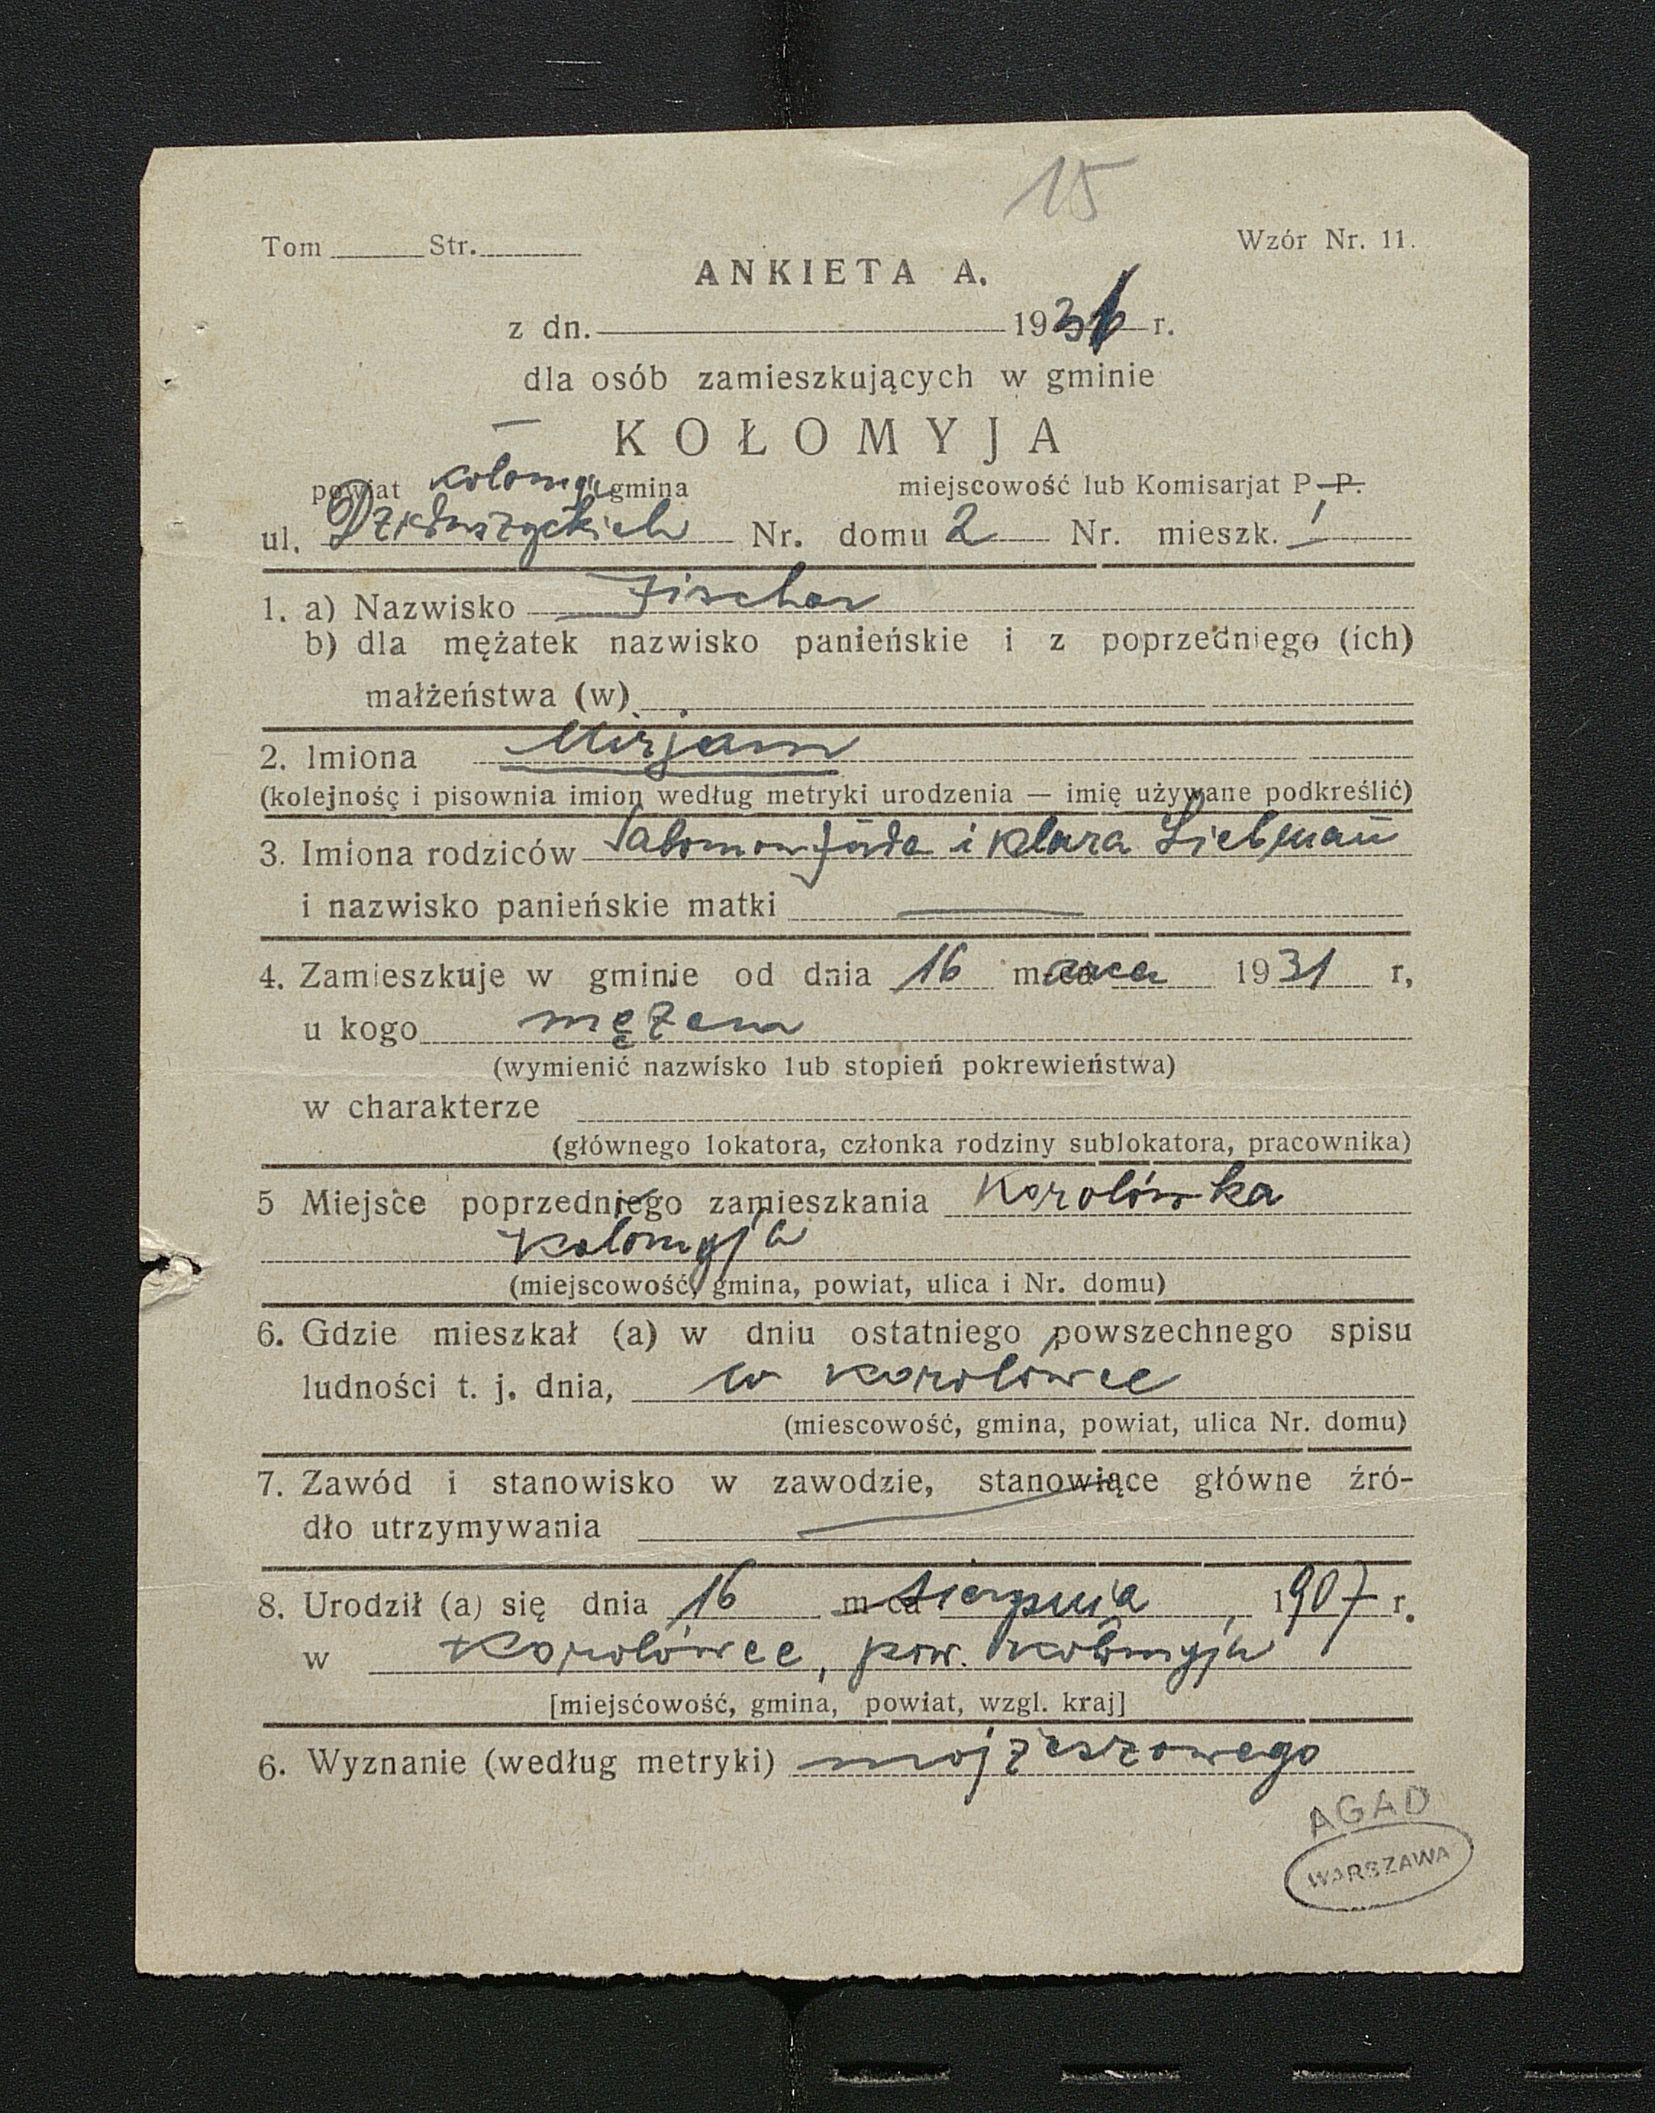 15
Tom Str. Wzór Nr. 11.
ANKIETA A.
z dn. 193 r.
dla osób zamieszkujących w gminie
KOŁOMYJA
powiat gmina miejscowość lub Komisarjat P. P.
ul. Dzieduszyckich Nr. domu 2 Nr. mieszk. 1
1. a) Nazwisko Fischer
b) dla mężatek nazwisko panieńskie i z poprzedniego (ich)
małżeństwa (w)
2. Imiona Mirjam
(kolejnośç i pisownia imion według metryki urodzenia — imię używane podkreślić)
3. Imiona rodziców Salomon Juda i Klara Liebman
i nazwisko panieńskie matki
4. Zamieszkuje w gminie od dnia 16 1931 r,
u kogo mężem
(wymienić nazwisko lub stopień pokrewieństwa)
w charakterze
(głównego lokatora, członka rodziny sublokatora, pracownika)
5 Miejsce poprzedniego zamieszkania Korolówka
Kołomyja
(miejscowość, gmina, powiat, ulica i Nr. domu)
6. Gdzie mieszkał (a) w dniu ostatniego powszechnego spisu
ludności t. j. dnia, w Korolówce
(miescowość, gmina, powiat, ulica Nr. domu)
7. Zawód i stanowisko w zawodzie, stanowiące główne źró-
dło utrzymywania
8. Urodził (a) się dnia 16 m-ca sierpnia 1907 r.
w Korolówce, pow. Kołomyja
[miejsćowość, gmina, powiat, wzgl. kraj]
6. Wyznanie (według metryki) mojżeszowego
AGAD
WARSZAWA